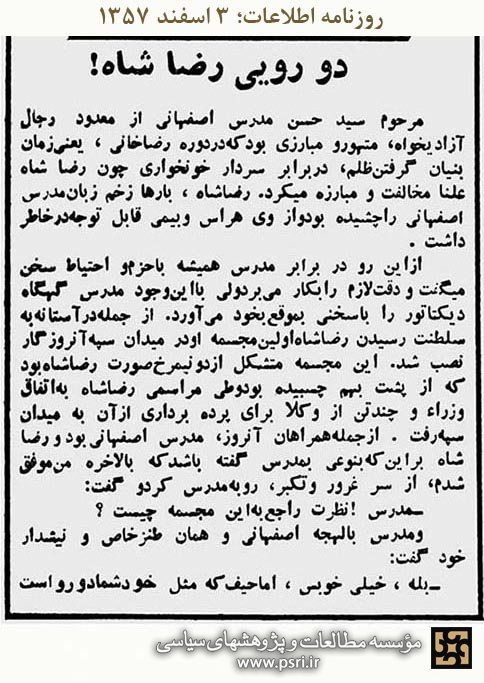 روزنامه اطلاعات؛ ۳ اسفند ۱۳۵۷
دو رویی رضا شاه!
مرحوم سید حسن مدرس اصفهانی از معدود رجال
آزادیخواه، متهورو مبارزی بودکه‌دردوره رضاخانی ، یعنی‌زمان
بنیان گرفتن‌ظلم، دربرابر سردار خونخواری چون رضا شاه
علنا مخالفت و مبارزه میکرد. رضاشاه ، بارها زخم زبان‌مدرس
اصفهانی راچشیده بودواز وی هراس وبیمی قابل توجه‌درخاطر
داشت .
ازاین رو در برابر مدرس همیشه باحزم‌و احتیاط سخن
میگفت و دقت‌لازم رابکار می‌بردولی بااین‌وجود مدرس گهگاه
دیکتاتور را باسخنی بموقع‌بخود می‌آورد. از جمله‌درآستانه‌به
سلطنت رسیدن رضاشاه‌اولین‌مجسمه اودر میدان سپه‌آنروزگار
نصب شد. این مجسمه متشکل ازدونیمرخ‌صورت رضاشاه‌بود
که از پشت بهم چسبیده بودوطی مراسمی رضاشاه به‌اتفاق
وزراء و چندتن از وکلا برای پرده برداری ازآن به میدان
سپه‌رفت . ازجمله‌همراهان آنروز، مدرس اصفهانی بود و رضا
شاه براین‌که‌بنوعی بمدرس گفته باشدکه بالاخره من‌موفق
شدم، از سر غرور وتکبر، روبه‌مدرس کردو گفت:
ـمدرس !نظرت راجع‌به‌این مجسمه چیست ؟
ومدرس بالهجه اصفهانی و همان طنزخاص و نیشدار
خود گفت:
ـبله ، خیلی خوبس ، اماحیف‌که مثل خودشمادورو است
مؤسسه مطالعات و پژوهشهای سیاسی
www.psri.ir